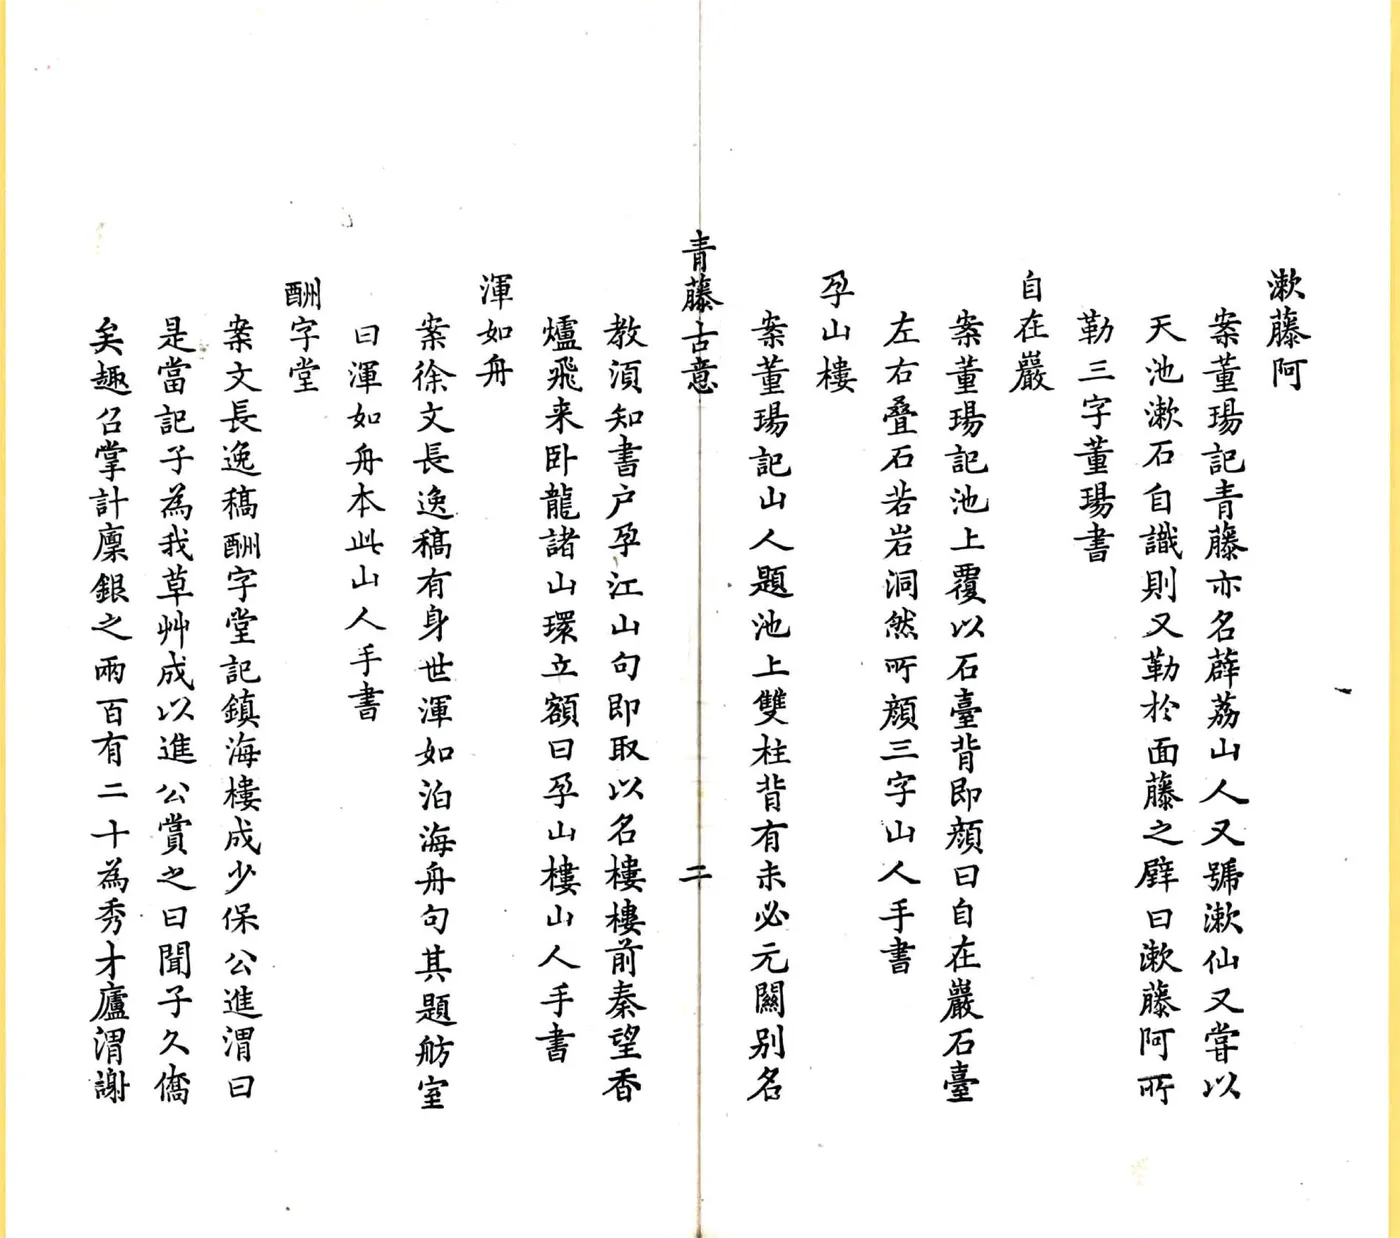 漱藤阿
案董瑒記青藤亦名薜荔山人又號漱仙又嘗以
天池漱石自識則又勒於面藤之壁曰漱藤阿所
勒三字董瑒書
自在巖
案董瑒記池上覆以石臺背即顔曰自在巖石臺
左右叠石若岩洞然所顔三字山人手書
孕山樓
案董瑒記山人題池上雙柱背有未必元關别名
青藤古意 二
教湏知書户孕江山句即取以名樓樓前秦望香
爐飛来卧龍諸山環立額曰孕山樓山人手書
渾如舟
案徐文長逸稿有身世渾如泊海舟句其題舫室
曰渾如舟本此山人手書
酬字堂
案文長逸稿酬字堂記鎮海樓成少保公進渭曰
是當記子為我草艸成以進公賞之曰聞子久僑
矣趣召掌計廪銀之兩百有二十為秀才廬渭謝